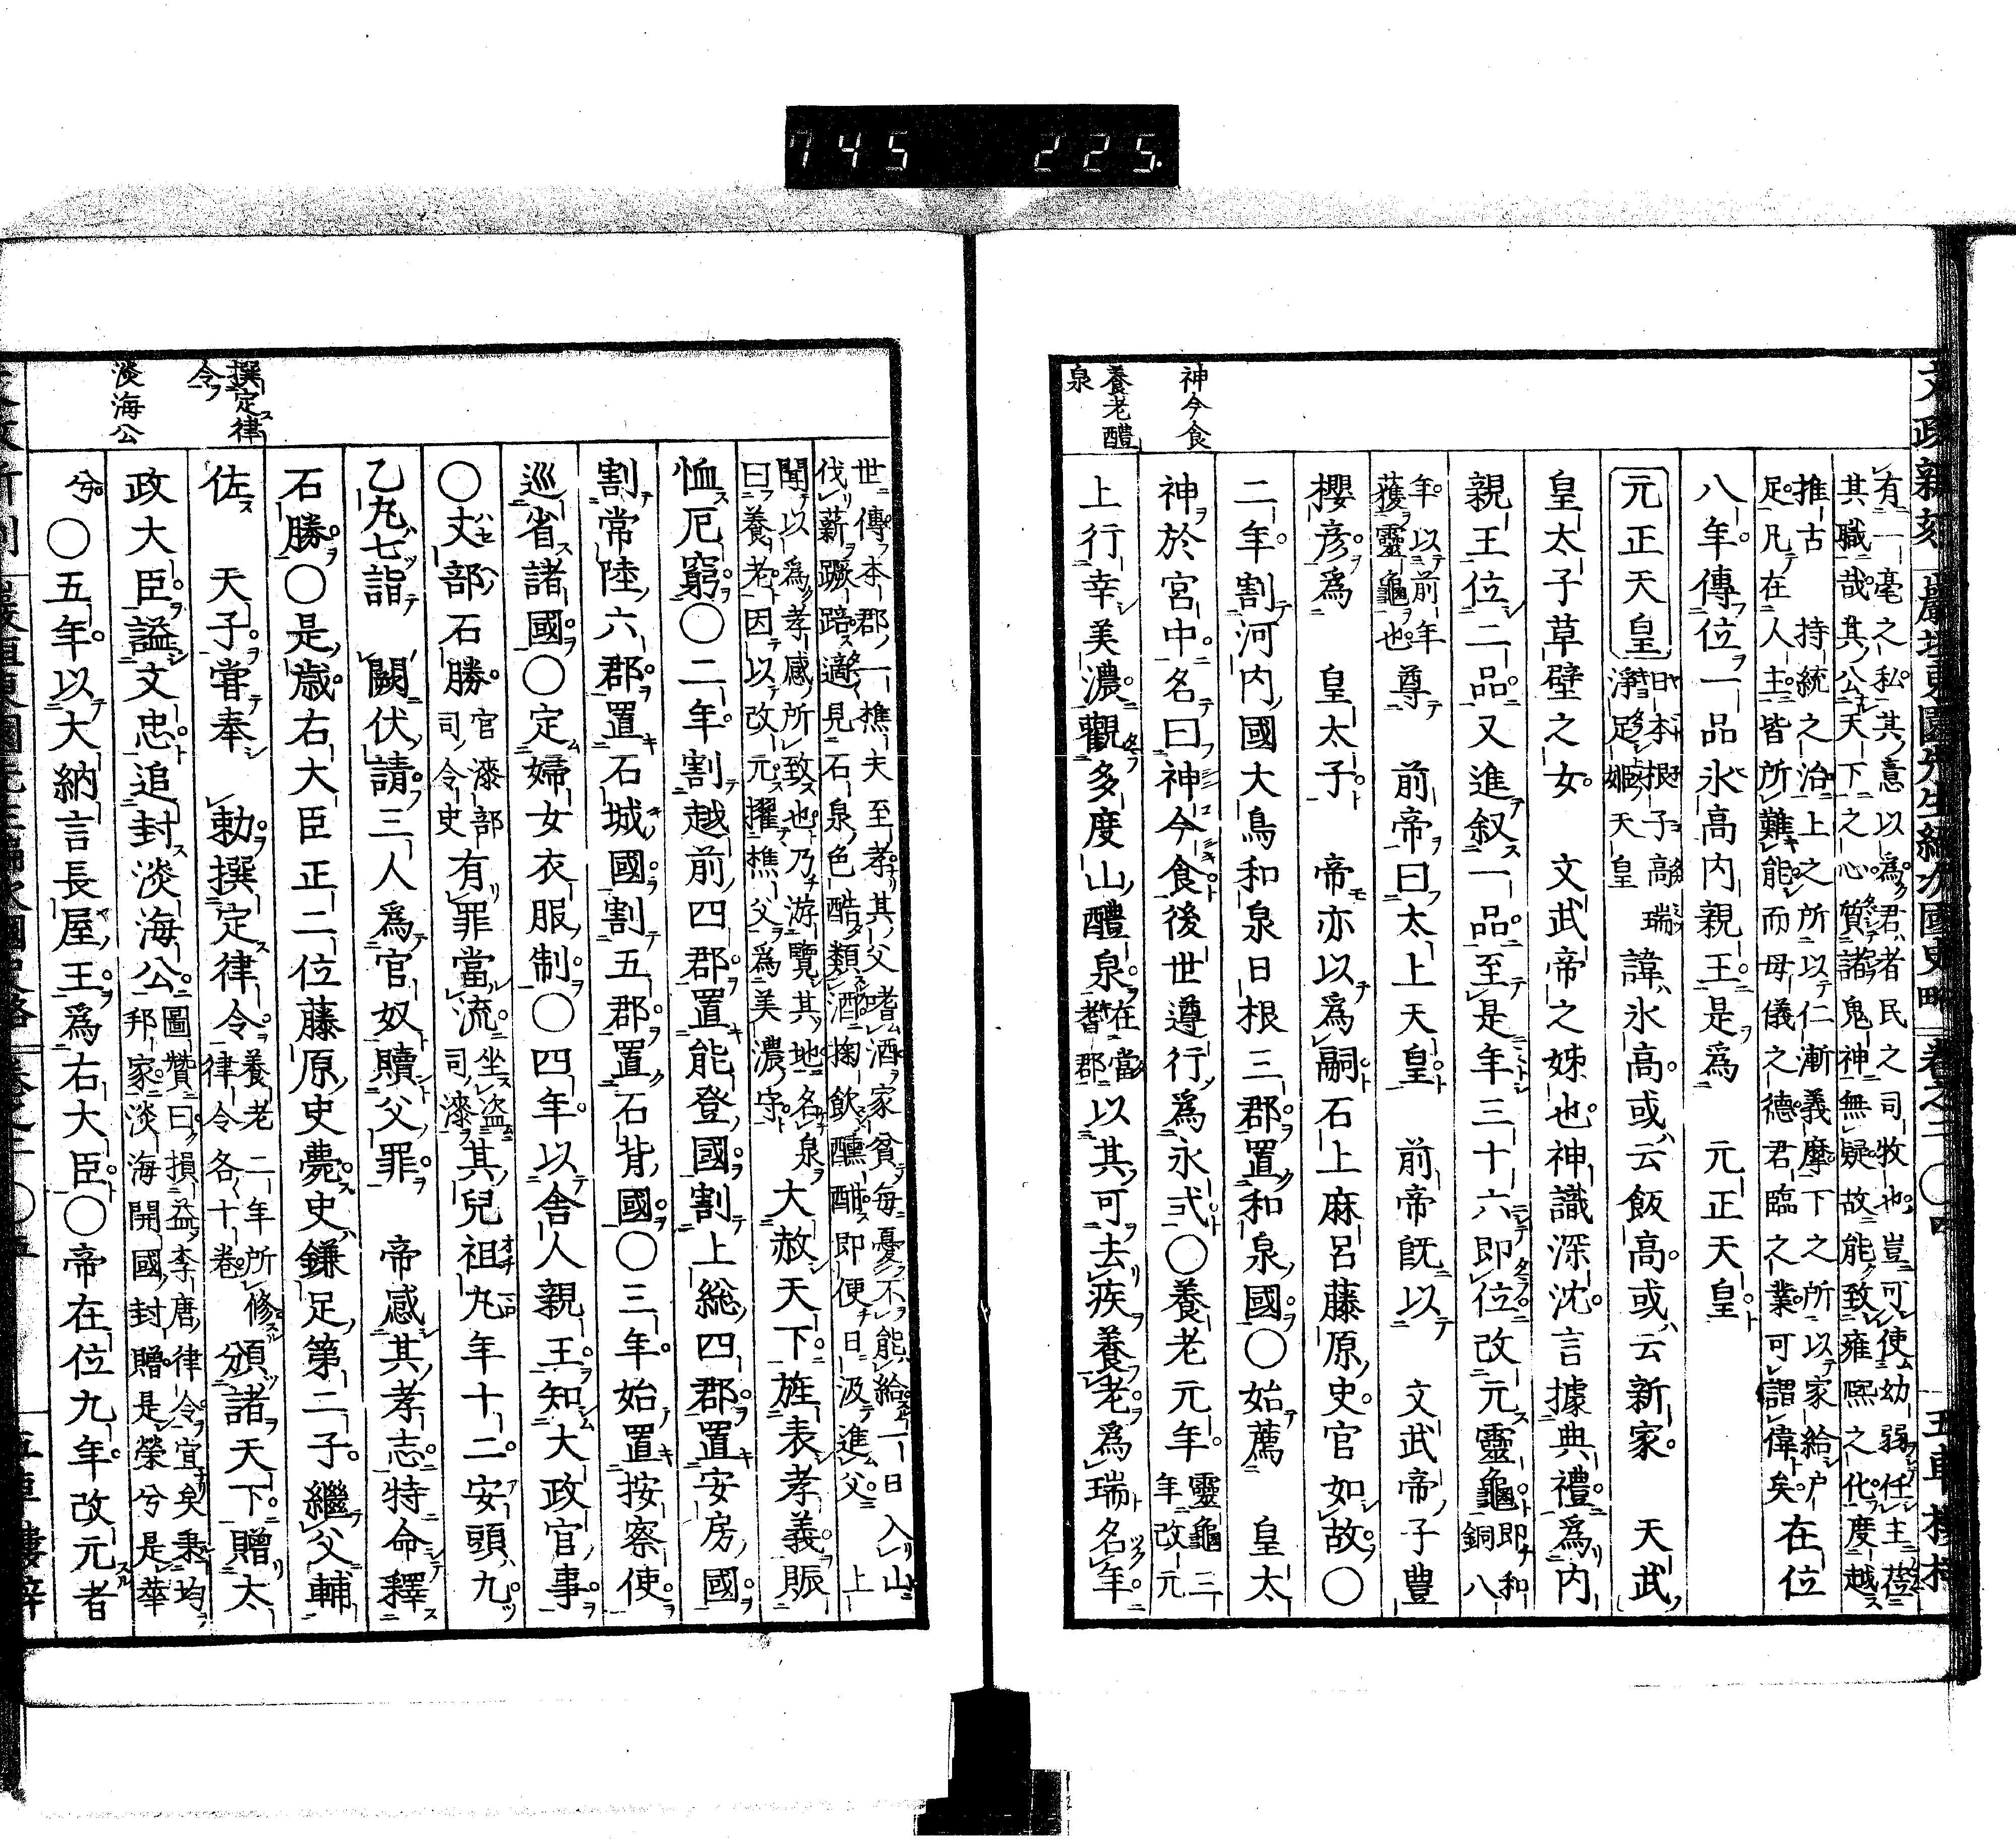 745 225
文政新刻 巖垣東園先生編次國史略 卷之二 〇四 五車樓梓
神今食
養老醴泉
有一毫之私其意以爲君者民之司牧也豈可使幼弱任主莅
其職哉其公天下之心質諸鬼神無疑故能致雍煕之化度越
推古 持統之治上之所以仁漸義摩下之所以家給戶
足凡在人主皆所難能而母儀之德君臨之業可謂偉矣在位
八年傳位一品氷高内親王是爲 元正天皇
元正天皇 日本根子高瑞淨足姬天皇 諱氷高或云飯高或云新家 天武
皇太子草壁之女 文武帝之姊也神識深沈言據典禮爲内
親王位二品又進叙一品至是年三十六即位改元靈龜即和銅八
年以前年獲靈龜也尊 前帝曰太上天皇 前帝旣以 文武帝子豐
櫻彦爲 皇太子 帝亦以爲嗣石上麻呂藤原史官如故〇
二年割河内國大鳥和泉日根三郡置和泉國〇始薦 皇太
神於宮中名曰神今食後世遵行爲永式〇養老元年靈龜二年改元
上行幸美濃觀多度山醴泉在當耆郡以其可去疾養老爲瑞名年
撰定律令
淡海公
世傳本郡一樵夫至孝其父嗜酒家貧每憂不能給一日入山
伐薪蹶踣適見石泉色酷類酒掬飮醺酣即便日汲進父 上
聞以爲孝感所致也乃游覽其地名泉
曰養老因以改元擢樵父爲美濃守大赦天下旌表孝義賑
恤厄窮〇二年割越前四郡置能登國割上総四郡置安房國
割常陸六郡置石城國割五郡置石背國〇三年始置按察使
巡省諸國〇定婦女衣服制〇四年以舍人親王知大政官事
〇丈部石勝官漆部司令史有罪當流坐盜司漆其兒祖九年十二安頭九
乙九七詣 闕伏請三人爲官奴贖父罪 帝感其孝志特命釋
石勝〇是歳右大臣正二位藤原史薨史鎌足第二子繼父輔
佐 天子嘗奉 勅撰定律令養老二年所修律令各十卷頒諸天下贈太
政大臣謚文忠追封淡海公圖贊曰損益李唐律令宜矣秉均邦家淡海開國封贈是榮兮是華
兮〇五年以大納言長屋王爲右大臣〇帝在位九年改元者